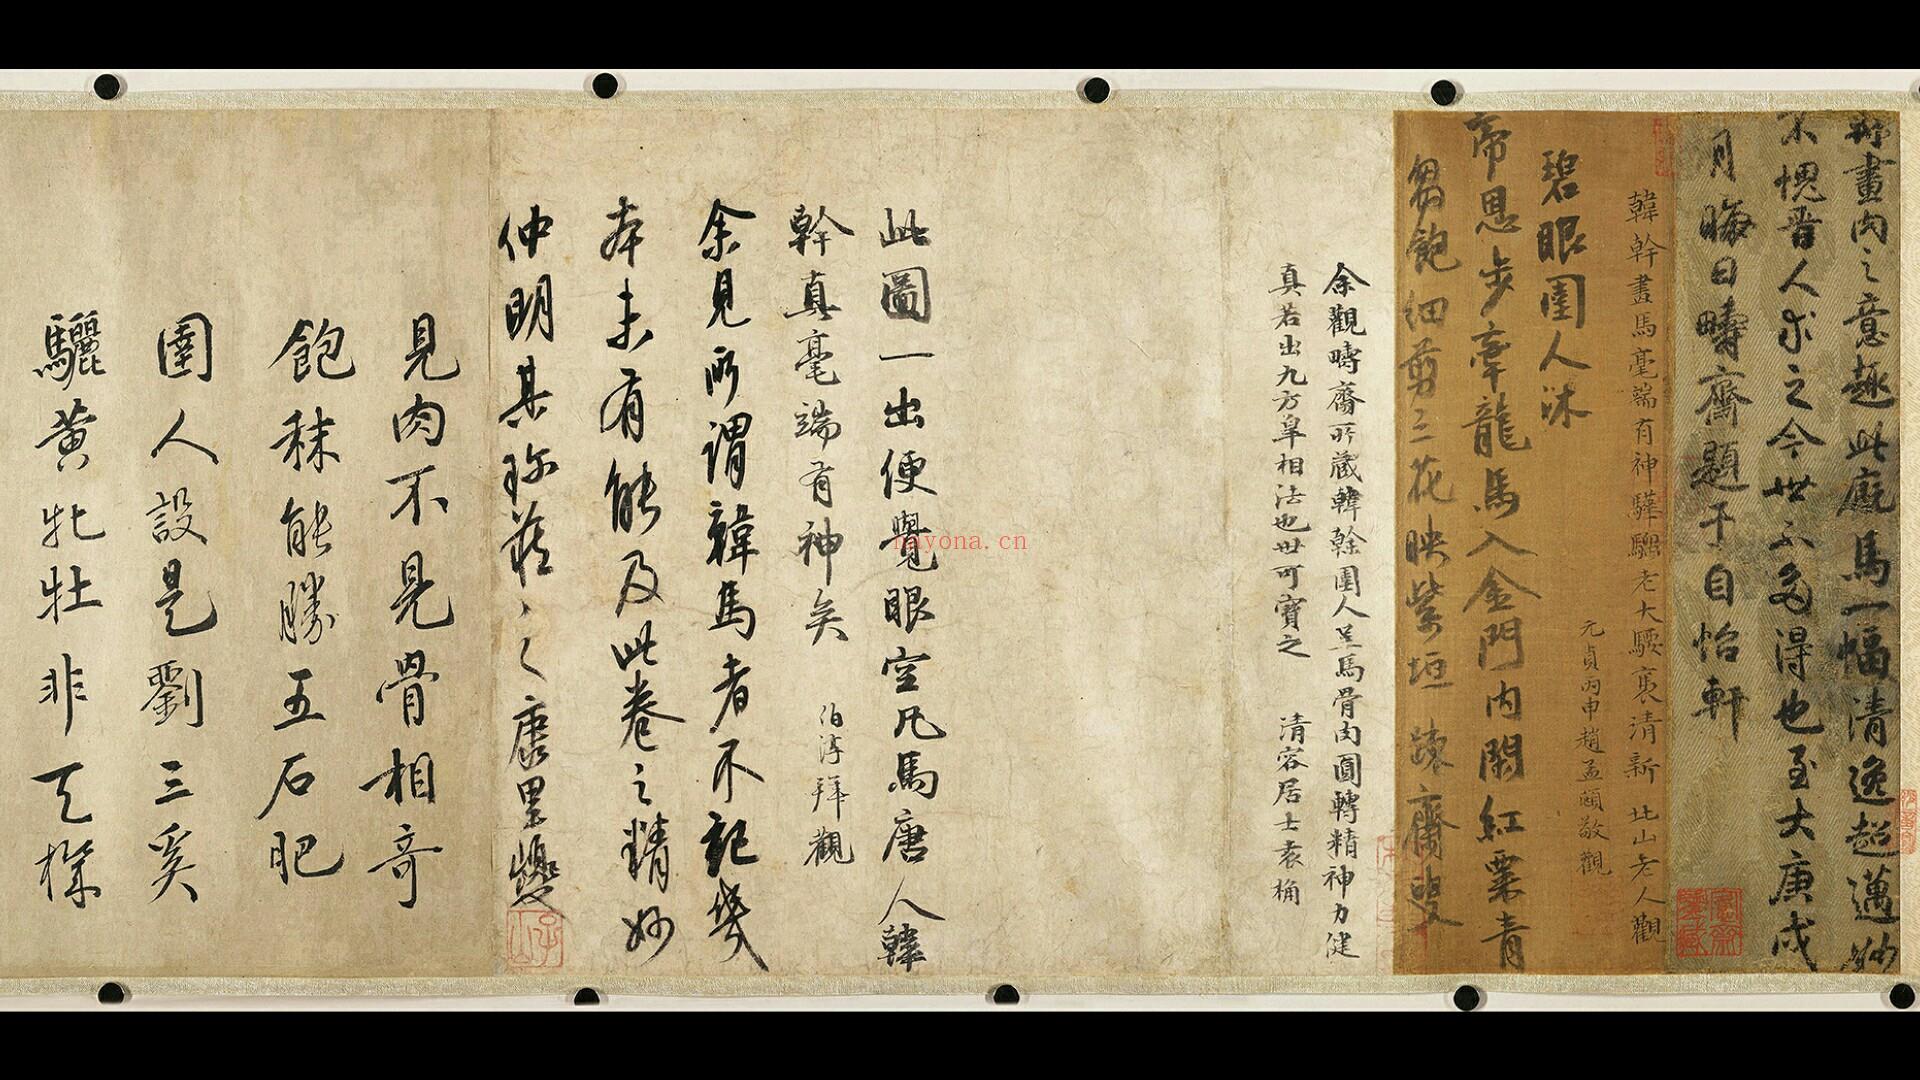 韓畫肉之意趣此廐馬一幅清逸超邁妙
不愧晋人求之今世不多得也至大庚戌
月晦日疇齋題于自怡軒
韓幹畫馬毫端有神驊騮老大騕褭清新 北山老人觀
元貞丙申趙孟頫敬觀
碧眼圉人沐
帝恩步牽龍馬入金門内閑紅粟青
芻飽細剪三花映紫垣 疇齋叟
余觀疇齋所藏韓幹圉人呈馬骨肉圓轉精神力健
真若出九方臯相法也世可寳之 清容居士袁桷
此圖一出便覺眼空凡馬唐人韓
幹真毫端有神矣 伯淳拜觀
余見所謂韓馬者不記幾
本未有能及此卷之精妙
仲明其珍藏之 康里巎
子山
見肉不見骨相奇
飽秣能勝五石肥
圉人設是劉三奚
驪黄牝牡非天機
nayona.cn